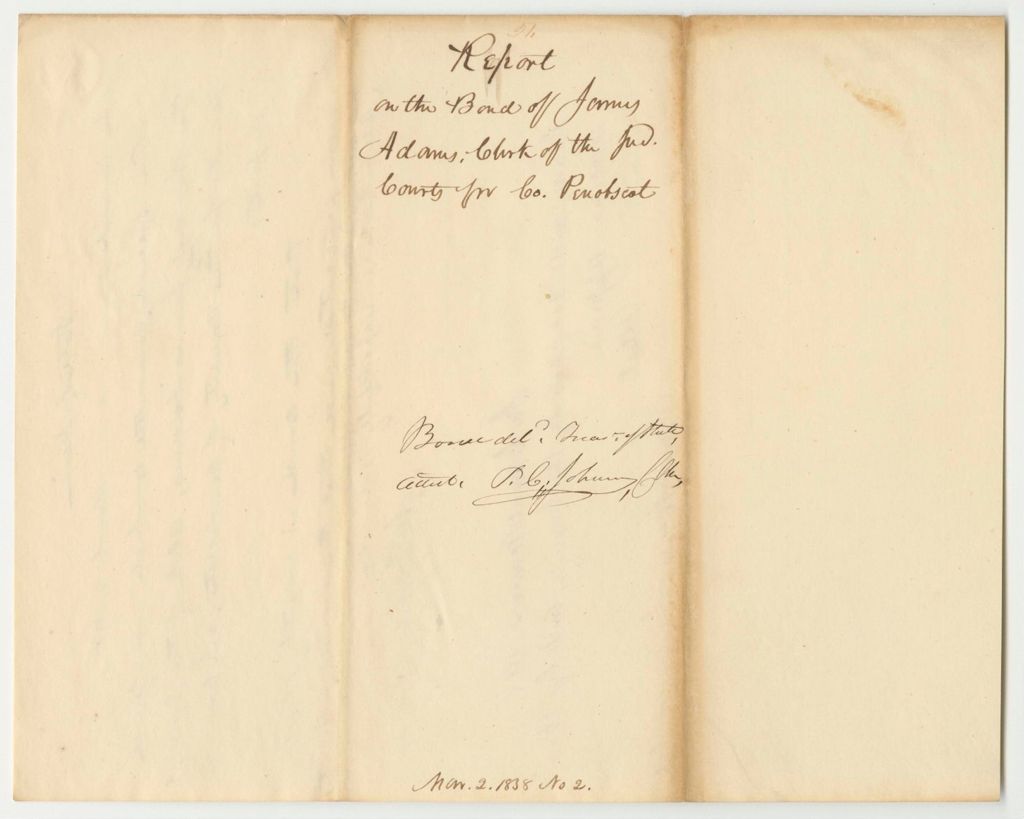 Report
on the Bond of James
Adams, Clerk of the Jud.
Courts for Co. Penobscot
Bond del.d Treas.r of State,
attest. P. C. Johnson,
Mar. 2. 1838 No 2.